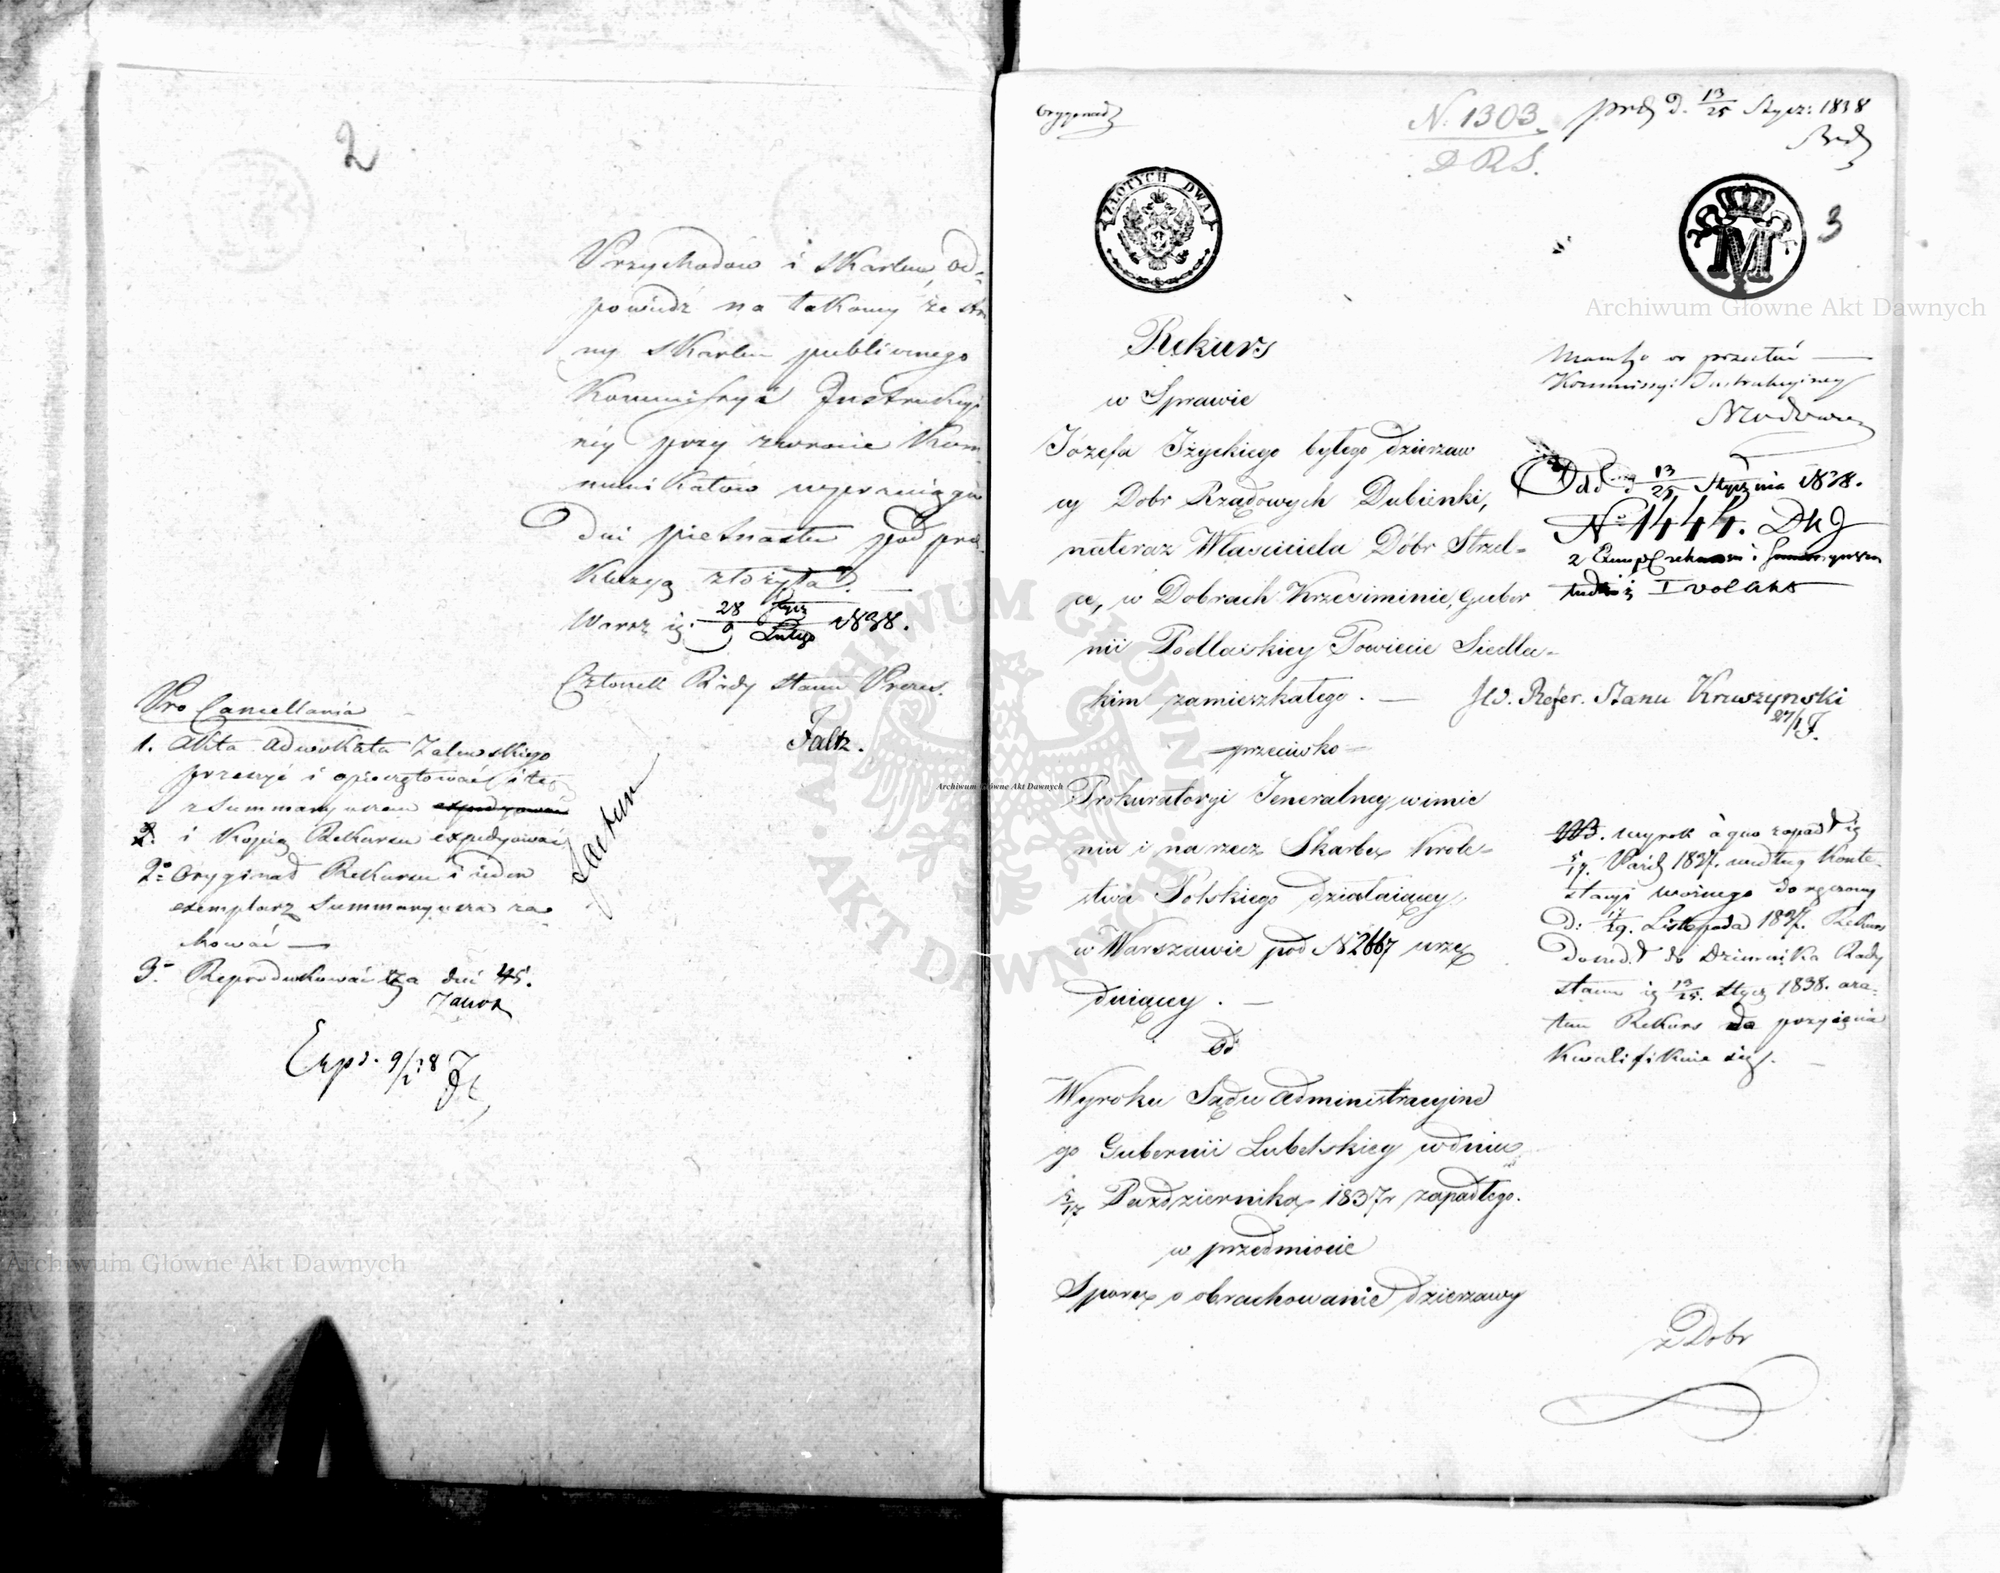 2
Przychodów i Skarbu, od-
powiedź na takowy ze stro
ny Skarbu publicznego
Kommissya Instrukcyi
ney przy zwrocie Kom
munikatów wyprawią
dni piętnastu pod pre
kluzyą złożyła.
Warsz: 28 Stycz / 9 Lutego 1838.
Członek Rady Stanu Prezes.
Faltz.
Pro Cancellaria
1. Akta Adwokata Zalewskiego
przeszyć i opieczętować i te
z Summaryuszem expedyować
i Kopią Rekursu expedyować
2º Oryginał Rekursu i jeden
exemplarz Summaryusza za
chować —
3º Reprodukować za dni 45.
Factum
Exp. 9/2 38
Oryginał
N. 1303.
D R S.
prd d. 13/25 Stycz: 1838
ZŁOTYCH DWA
M
3
Rekurs
w Sprawie
Józefa Iżyckiego byłego dzierżaw
cy Dobr Rządowych Dubienki,
nateraz Właściciela Dóbr Strzel-
ce, w Dobrach Krześciminie, Guber
nii Podlaskiey Powiecie Siedlec-
kim zamieszkałego. —
przeciwko
Prokuratoryi Jeneralney w imie
niu i na rzecz Skarbu Króle-
stwa Polskiego działaiącey
w Warszawie pod N 2667 urzę
duiącey. —
Od
Wyroku Sądu Administracyjne
go Gubernii Lubelskiey w dniu
5/17 Października 1837r zapadłego.
w przedmiocie
Sporu o obrachowanie dzierżawy
z Dobr
przesłać
Kommissyi Instrukcyiney
Odd. d. 13/25 Stycznia 1838.
Nº 1444. DKJ
I vol Akt
JW. Refer. Stanu Kruszyński
27/1 F.
NB. wyrok à quo zapadł
5/17. Paźdz 1837. według Konte-
stacyi woźnego doręczony
d: 17/29. Listopada 1837. Rekurs
doszedł do Dziennika Rady
Stanu 13/25. Stycz 1838. a za-
tem Rekurs do przyięcia
kwalifikuie się.
Archiwum Główne Akt Dawnych
Archiwum Główne Akt Dawnych
Archiwum Główne Akt Dawnych
ARCHIWUM GŁÓWNE AKT DAWNYCH